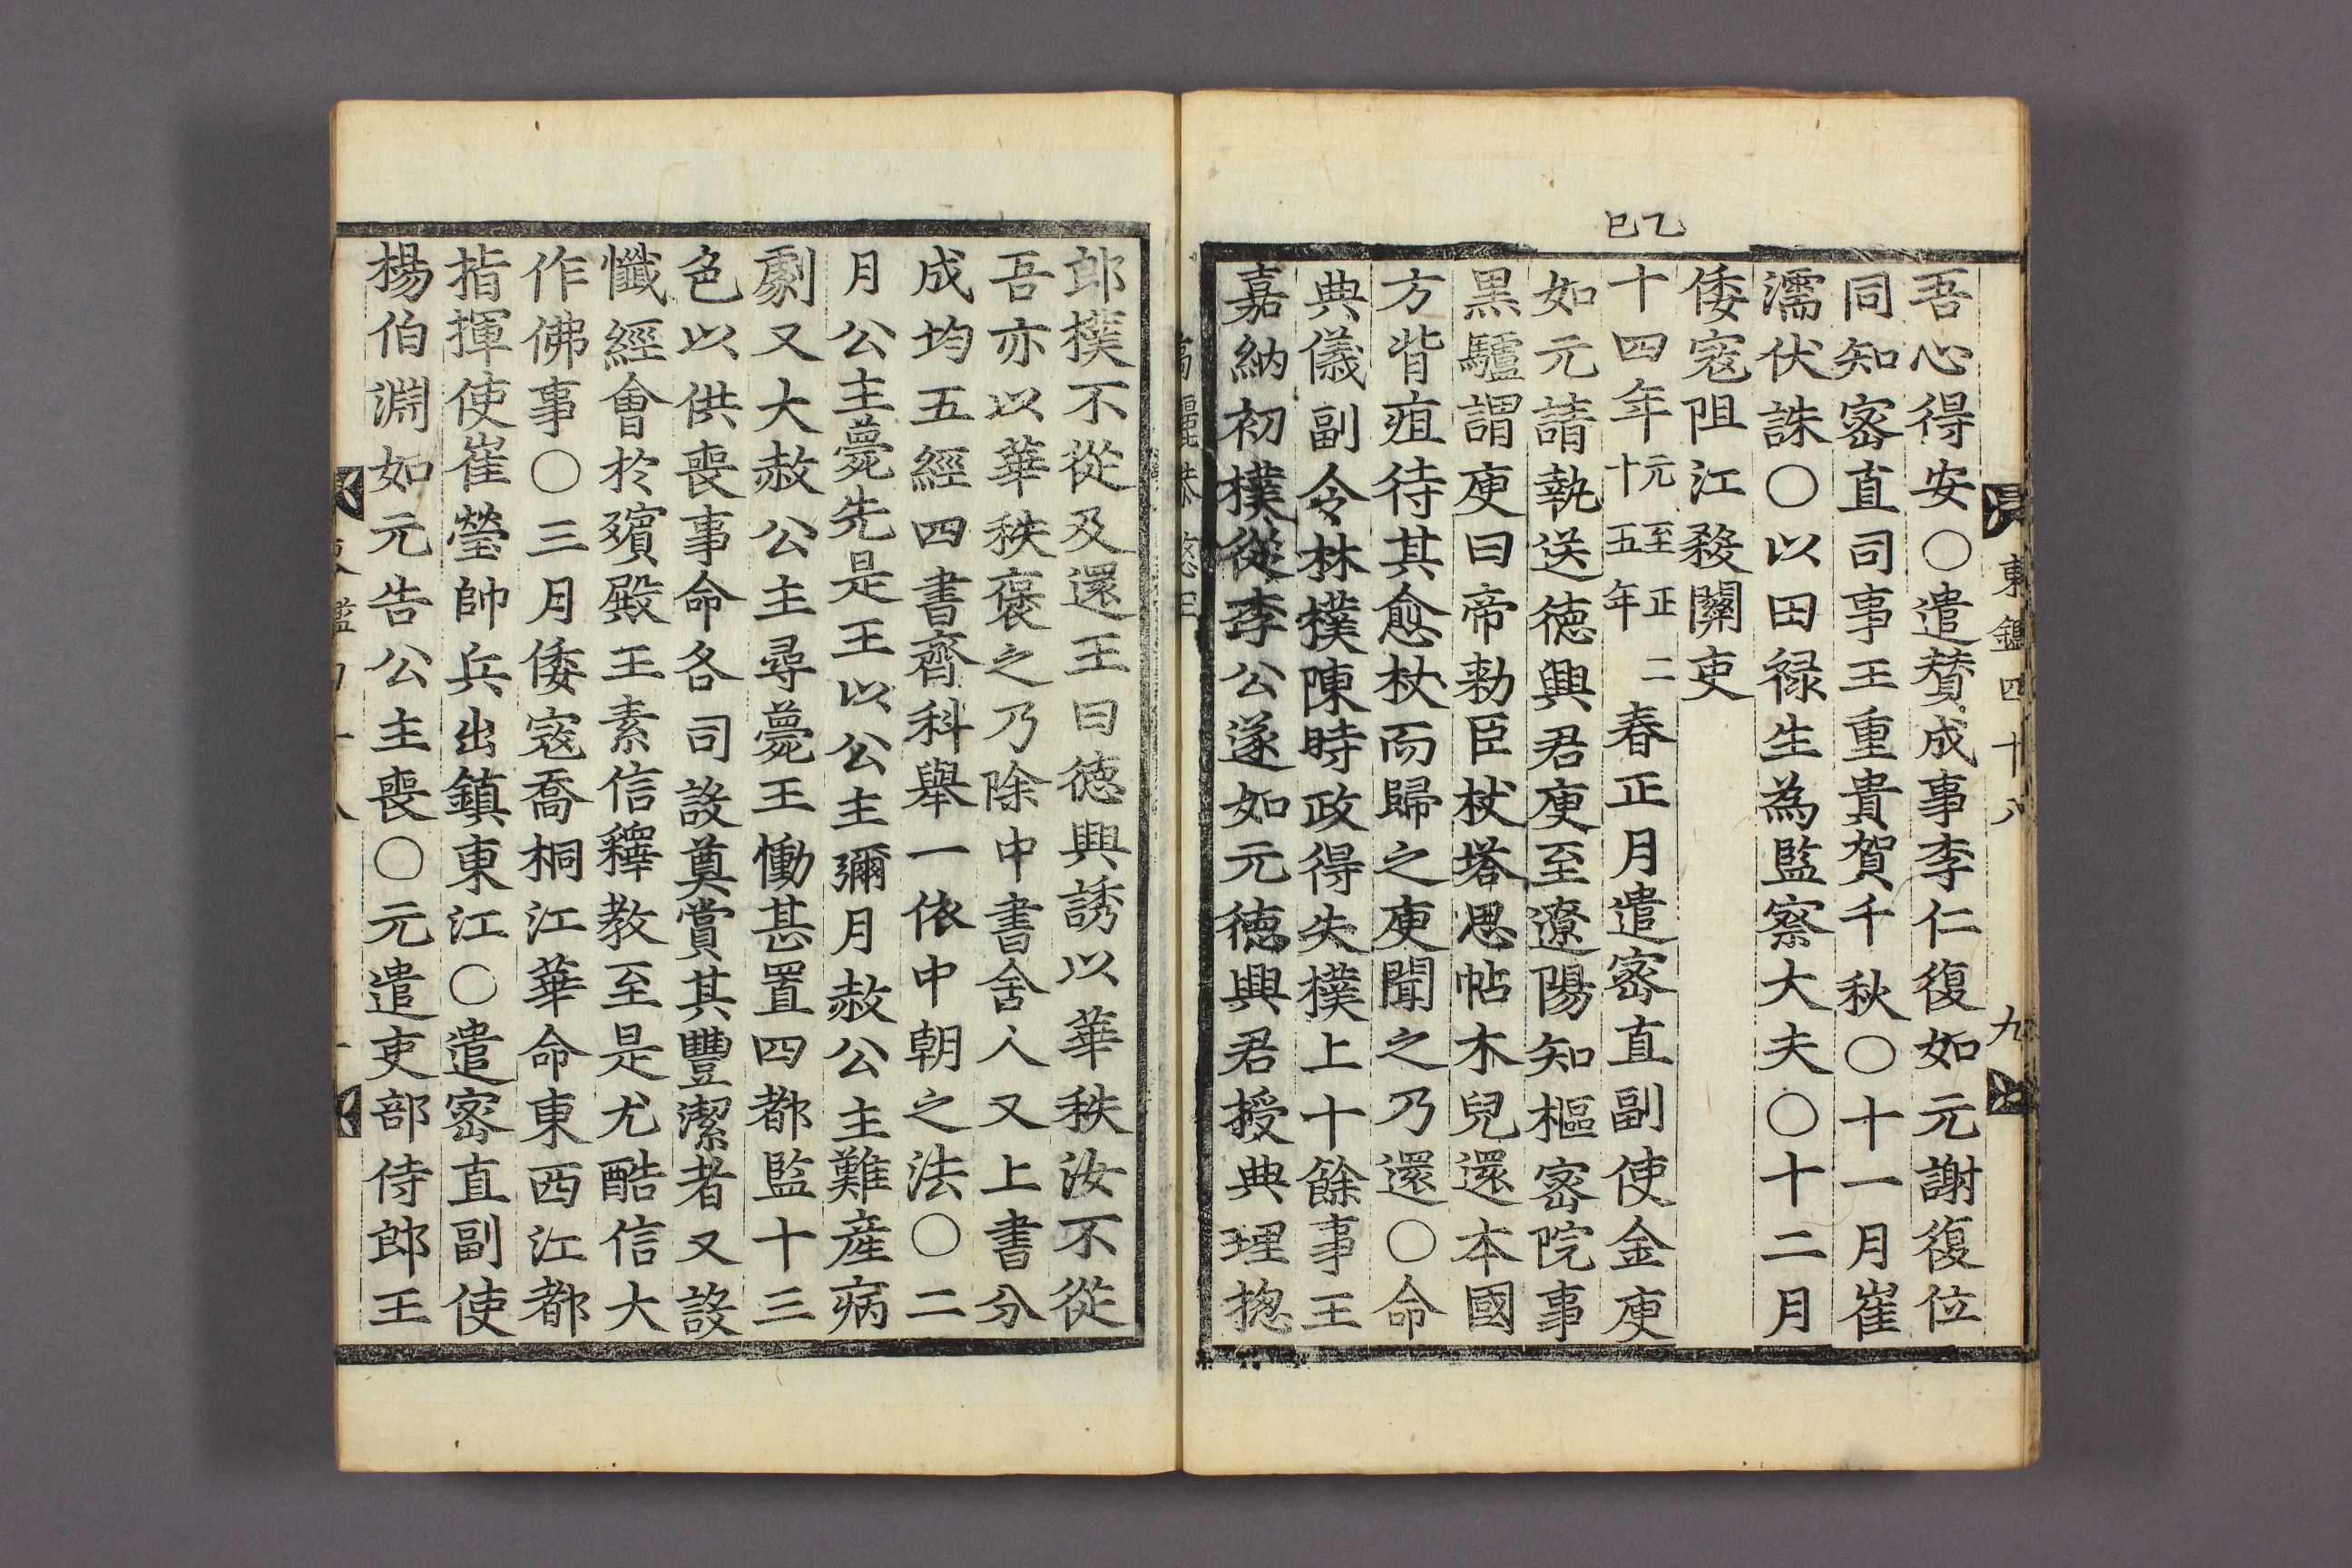 東鑑四十八 九
乙巳
吾心得安〇遣賛成事李仁復如元謝復位
同知密直司事王重貴賀千秋〇十一月崔
濡伏誅〇以田禄生為監察大夫〇十二月
倭寇阻江殺關吏
十四年元至正二十五年春正月遣密直副使金庾
如元請執送徳興君庾至遼陽知樞密院事
黒驢謂庾曰帝勑臣杖塔思帖木兒還本國
方背疽待其愈杖而歸之庾聞之乃還〇命
典儀副令林樸陳時政得失樸上十餘事王
嘉納初樸從李公遂如元徳興君授典理摠
郎樸不從及還王曰徳興誘以華秩汝不從
吾亦以華秩褒之乃除中書舍人又上書分
成均五經四書齊科舉一依中朝之法〇二
月公主薨先是王以公主彌月赦公主難産病
劇又大赦公主尋薨王慟甚置四都監十三
色以供喪事命各司設奠賞其豐潔者又設
懺經會於殯殿王素信釋教至是尤酷信大
作佛事〇三月倭寇喬桐江華命東西江都
指揮使崔瑩帥兵出鎮東江〇遣密直副使
楊伯淵如元告公主喪〇元遣吏部侍郎王